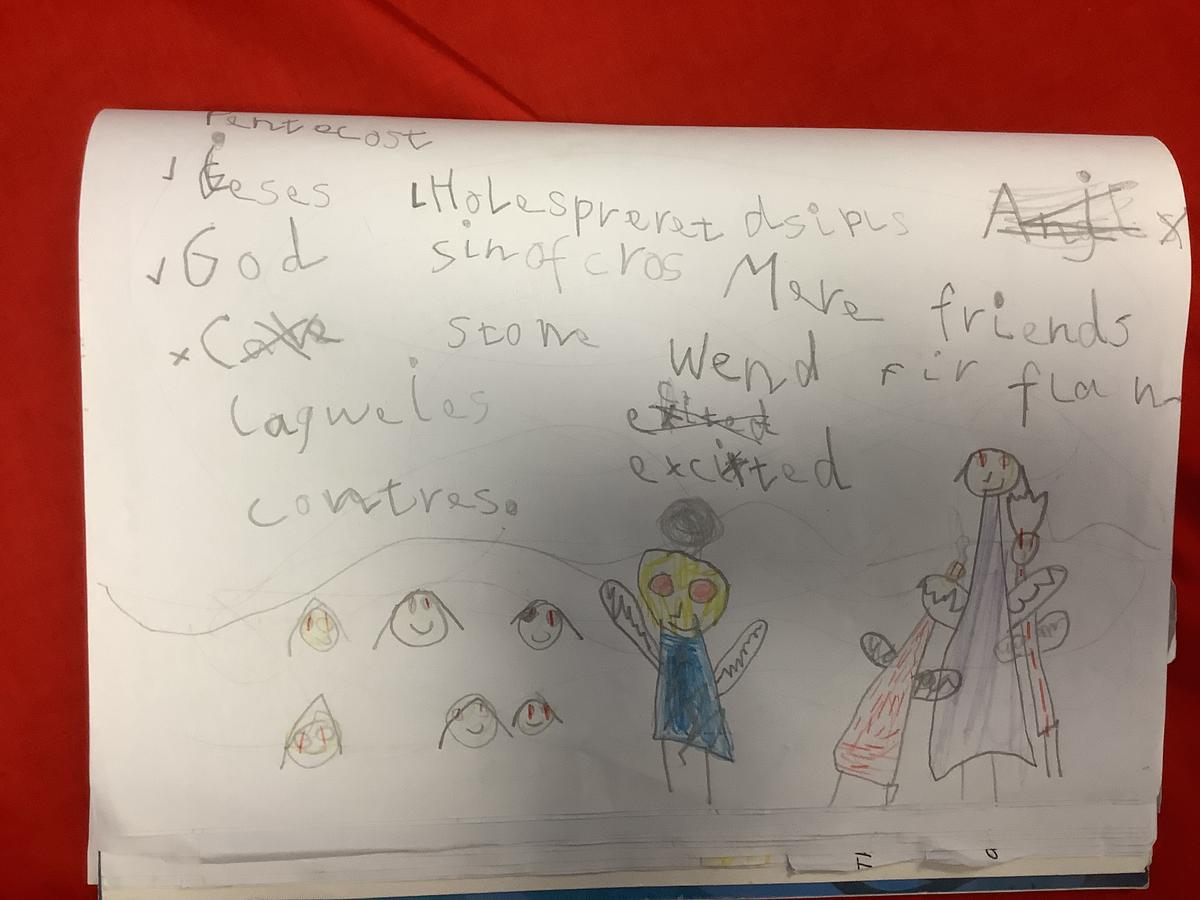 Pentecost
jeses Holespreret dsipls
God sinofcros Mare friends
stone wend fir flam
lagweies excited
contres.